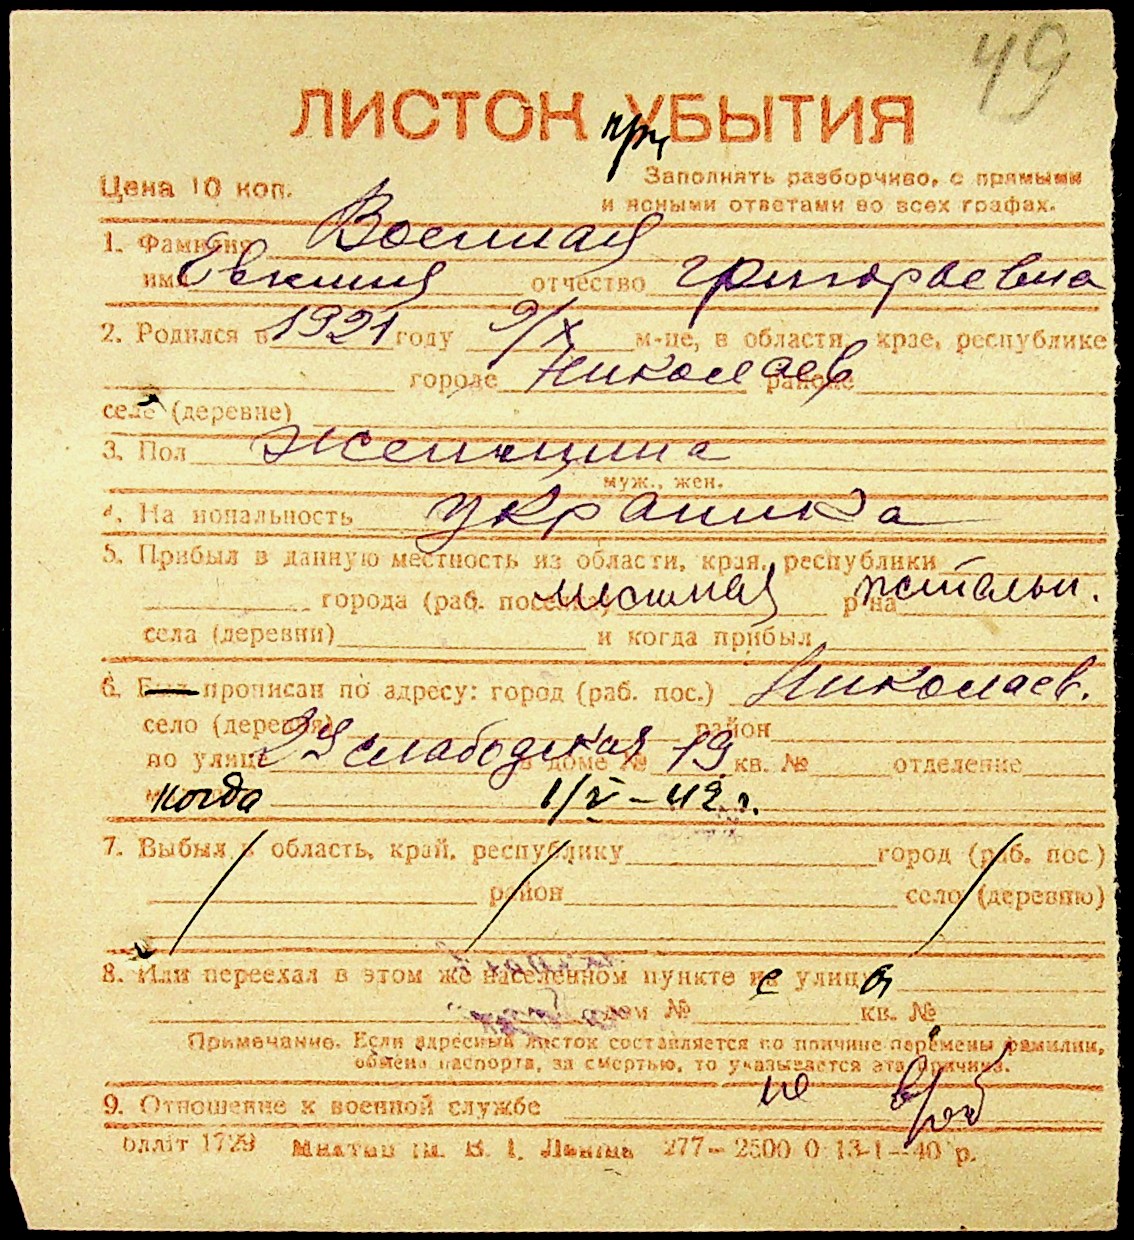 49
ЛИСТОК при УБЫТИЯ
Цена 10 коп.
Заполнять разборчиво, с прямыми
и ясными ответами во всех графах.
1. Фамилия Военная
имя Евкения отчество Григораевна
2. Родился в 1921 году 9/X м-це, в области, крае, республике
городе Николаев районе
селе (деревне)
3. Пол женщина
муж., жен.
4. На иональность украинка
5. Прибыл в данную местность из области, края, республики
города (раб. поселка) местная р на жительн.
села (деревни) и когда прибыл
6. Был прописан по адресу: город (раб. пос.) Николаев.
село (деревня) район
по улице 2я слабодская в доме № 79 кв. № отделение
когда 1/V-42 г.
7. Выбыл в область, край, республику город (раб. пос.)
район село (деревню)
8. Или переехал в этом же населенном пункте с улицы
дом № кв. №
Примечание. Если адресный листок составляется по причине перемены фамилии,
обмена паспорта, за смертью, то указывается эта причина.
9. Отношение к военной службе не
Міліт 1729 Миктип ім. В. І. Леніна 277—2500 0 13-1—40 р.